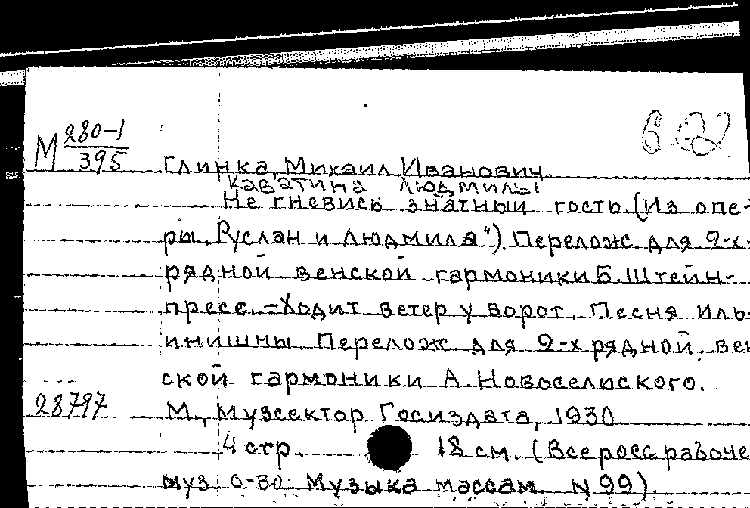 М 280-1
395
Глинка, Михаил Иванович
Каватина Людмилы
Не гневись знатный гость. (Из опе-
ры „Руслан и Людмила"). Перелож. для 2-х
рядной венской гармоники Б. Штейн-
пресс. – Ходит ветер у ворот. Песня Иль-
инишны. Перелож. для 2-х рядной вен
ской гармоники А. Новосельского.
28797
М., Музсектор Госиздата, 1930
4 стр. 18 см. (Всеросс. рабоче
муз. о-во. Музыка массам. N 99).